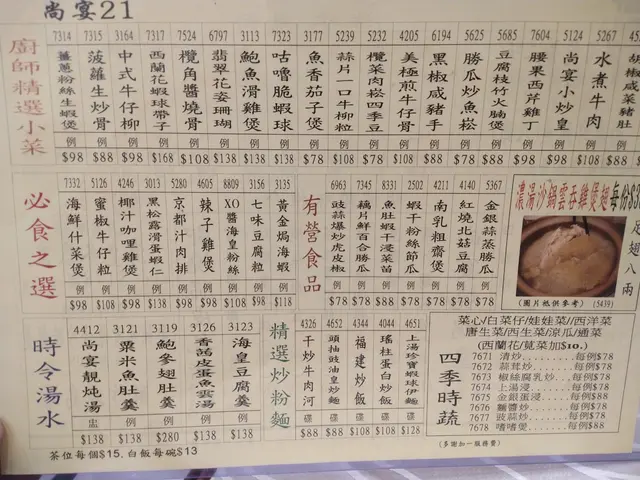 尚宴21
廚師精選小菜
7314 7315 3164 7317 7524 6797 3113 7323 3177 5239 5232 4205 6194 5625 5685 7604 5124 5267
薑蔥粉絲生蝦煲
菠蘿生炒骨
中式牛仔柳
西蘭花蝦球帶子
欖角醬燒骨
翡翠花姿珊瑚
鮑魚滑雞煲
咕嚕脆蝦球
魚香茄子煲
蒜片一口牛柳粒
欖菜肉崧四季豆
美極煎牛仔骨
黑椒咸豬手
勝瓜炒魚崧
豆腐枝竹火腩煲
腰果西芹雞丁
尚宴小炒皇
水煮牛肉
胡椒咸菜豬肚
例 例 例 例 例 例 例 例 例 例 例 例 例 例 例 例 例 例 例
$98 $88 $98 $168 $108 $138 $138 $138 $78 $108 $78 $108 $88 $88 $88 $98 $98 $108 $88
必食之選
7332 5126 4246 3013 5280 4605 8809 3156 3135
海鮮什菜煲
蜜椒牛仔粒
椰汁咖哩雞煲
黑松露滑蛋蝦仁
京都汁肉排
辣子雞煲
XO醬海皇粉絲煲
七味豆腐粒
黃金焗海蝦
例 例 例 例 例 例 例 例 例
$98 $98 $108 $138 $98 $108 $108 $98 $118
有營食品
6963 7345 8331 2502 4211 4140 5367
豉蒜爆炒虎皮椒
藕片鮮百合勝瓜
魚肚蝦干浸菜苗
蝦干粉絲節瓜
南乳粗齋煲
紅燒北菇豆腐
金銀蒜蒸勝瓜
例 例 例 例 例 例 例
$78 $78 $88 $78 $78 $78 $78
濃湯沙鍋雲吞雞煲翅 每份$3
足翅八兩
(圖片祗供參考) (5439)
時令湯水
4412 3121 3119 3126 3123
尚宴靚炖湯
粟米魚肚羹
鮑參翅肚羹
香茜皮蛋魚雲湯
海皇豆腐羹
盅 例 例 例 例
$138 $138 $280 $138 $138
精選炒粉麵
4326 4652 4344 4044 4651
干炒牛肉河
頭抽豉油皇炒麵
福建炒飯
瑤柱蛋白炒飯
上湯珍寶蝦球伊麵
碟 碟 碟 碟 碟
$88 $88 $108 $108 $128
四季時蔬
菜心/白菜仔/娃娃菜//西洋菜
唐生菜/西生菜/涼瓜/通菜
(西蘭花/莧菜加$10.)
7671 清炒.........每例$78
7672 蒜茸炒.......每例$78
7673 椒絲腐乳炒...每例$78
7674 上湯浸.......每例$78
7675 金銀蛋浸.....每例$88
7676 鹹醬炒.......每例$78
7677 豉蒜炒.......每例$78
7678 啫啫煲.......每例$88
(多謝加一服務費)
茶位每個$15, 白飯每碗$13